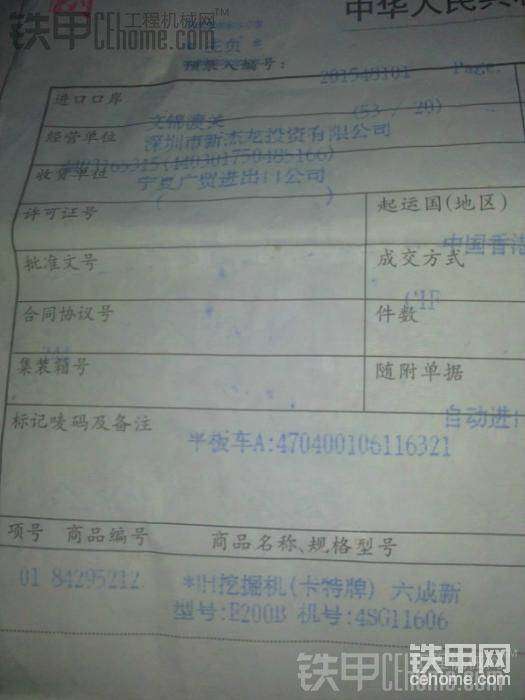 铁甲工程机械网
CEhome.com
中华人民共
*主页*
预录入编号: 201540101 Page.
进口口岸
文锦渡关 (53 / 20)
经营单位
深圳市新杰龙投资有限公司
收货单位
宁夏广贸进出口公司
( )
许可证号
起运国(地区)
中国香港
批准文号
成交方式
CIF
合同协议号
件数
集装箱号
随附单据
自动进
标记唛码及备注
平板车A:470400106116321
项号 商品编号 商品名称、规格型号
01 84295212 *旧挖掘机(卡特牌) 六成新
型号:E200B 机号:4SG11606
铁甲CEhome.com
铁甲网
cehome.com